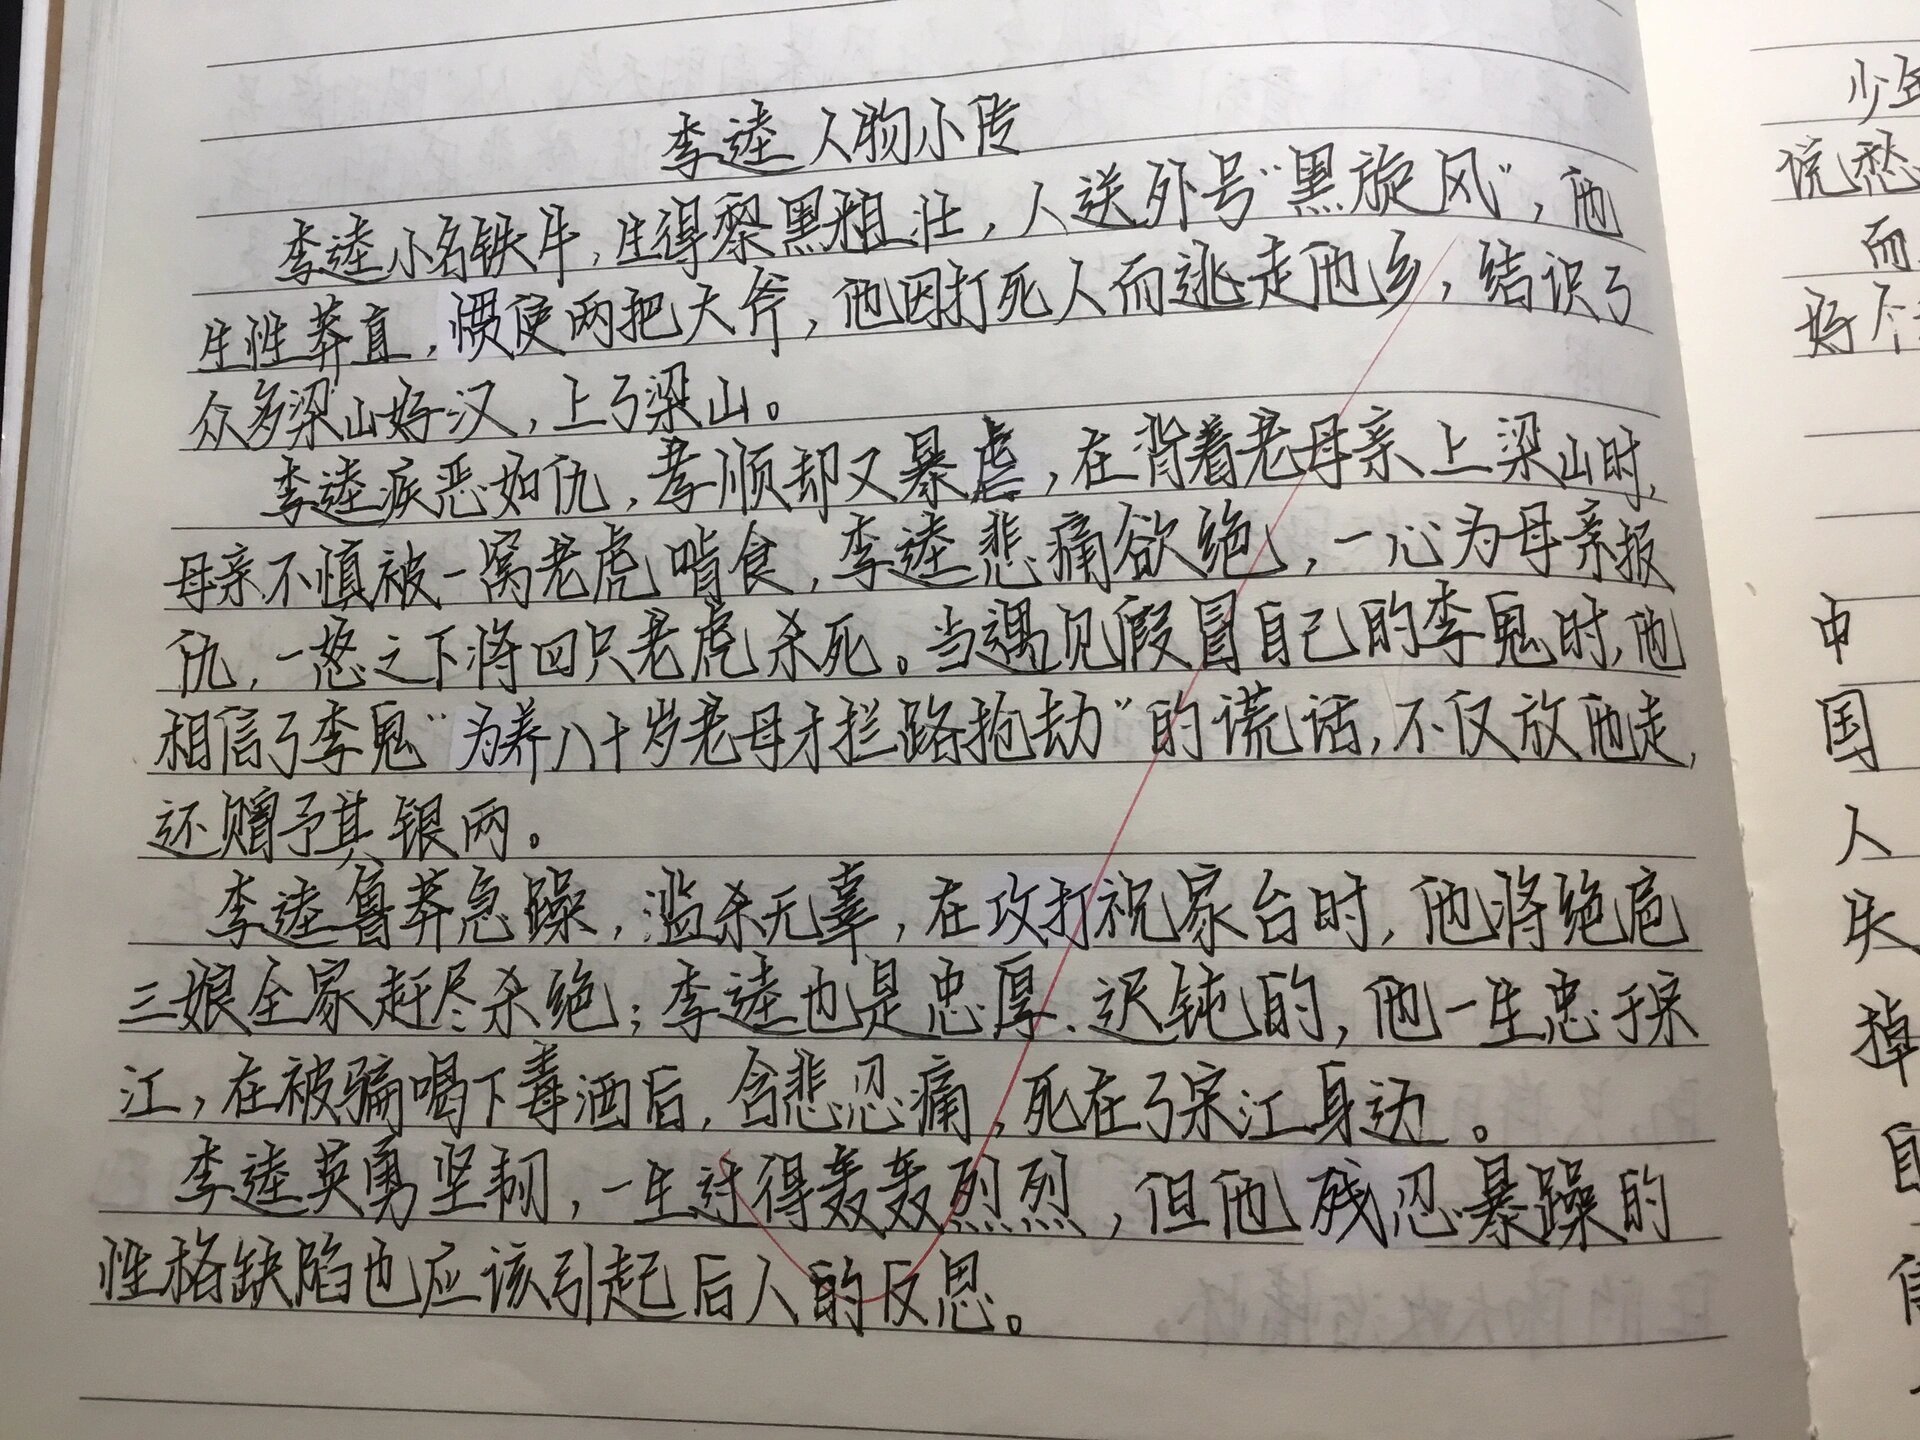 李逵人物小传
李逵小名铁牛，生得黎黑粗壮，人送外号“黑旋风”，他
生性莽直，惯使两把大斧，他因打死人而逃走他乡，结识了
众多梁山好汉，上了梁山。
李逵疾恶如仇，孝顺却又暴虐，在背着老母亲上梁山时，
母亲不慎被一窝老虎啃食，李逵悲痛欲绝，一心为母亲报
仇，一怒之下将四只老虎杀死。当遇见假冒自己的李鬼时，他
相信了李鬼“为养八十岁老母才拦路抢劫”的谎话，不仅放他走，
还赠予其银两。
李逵鲁莽急躁，滥杀无辜，在攻打祝家台时，他将绝扈
三娘全家赶尽杀绝；李逵也是忠厚、迟钝的，他一生忠于宋
江，在被骗喝下毒酒后，含悲忍痛，死在了宋江身边。
李逵英勇坚韧，一生过得轰轰烈烈，但他残忍暴躁的
性格缺陷也应该引起后人的反思。
少年
说愁
而
好个
中
国
人
失
掉
自
信